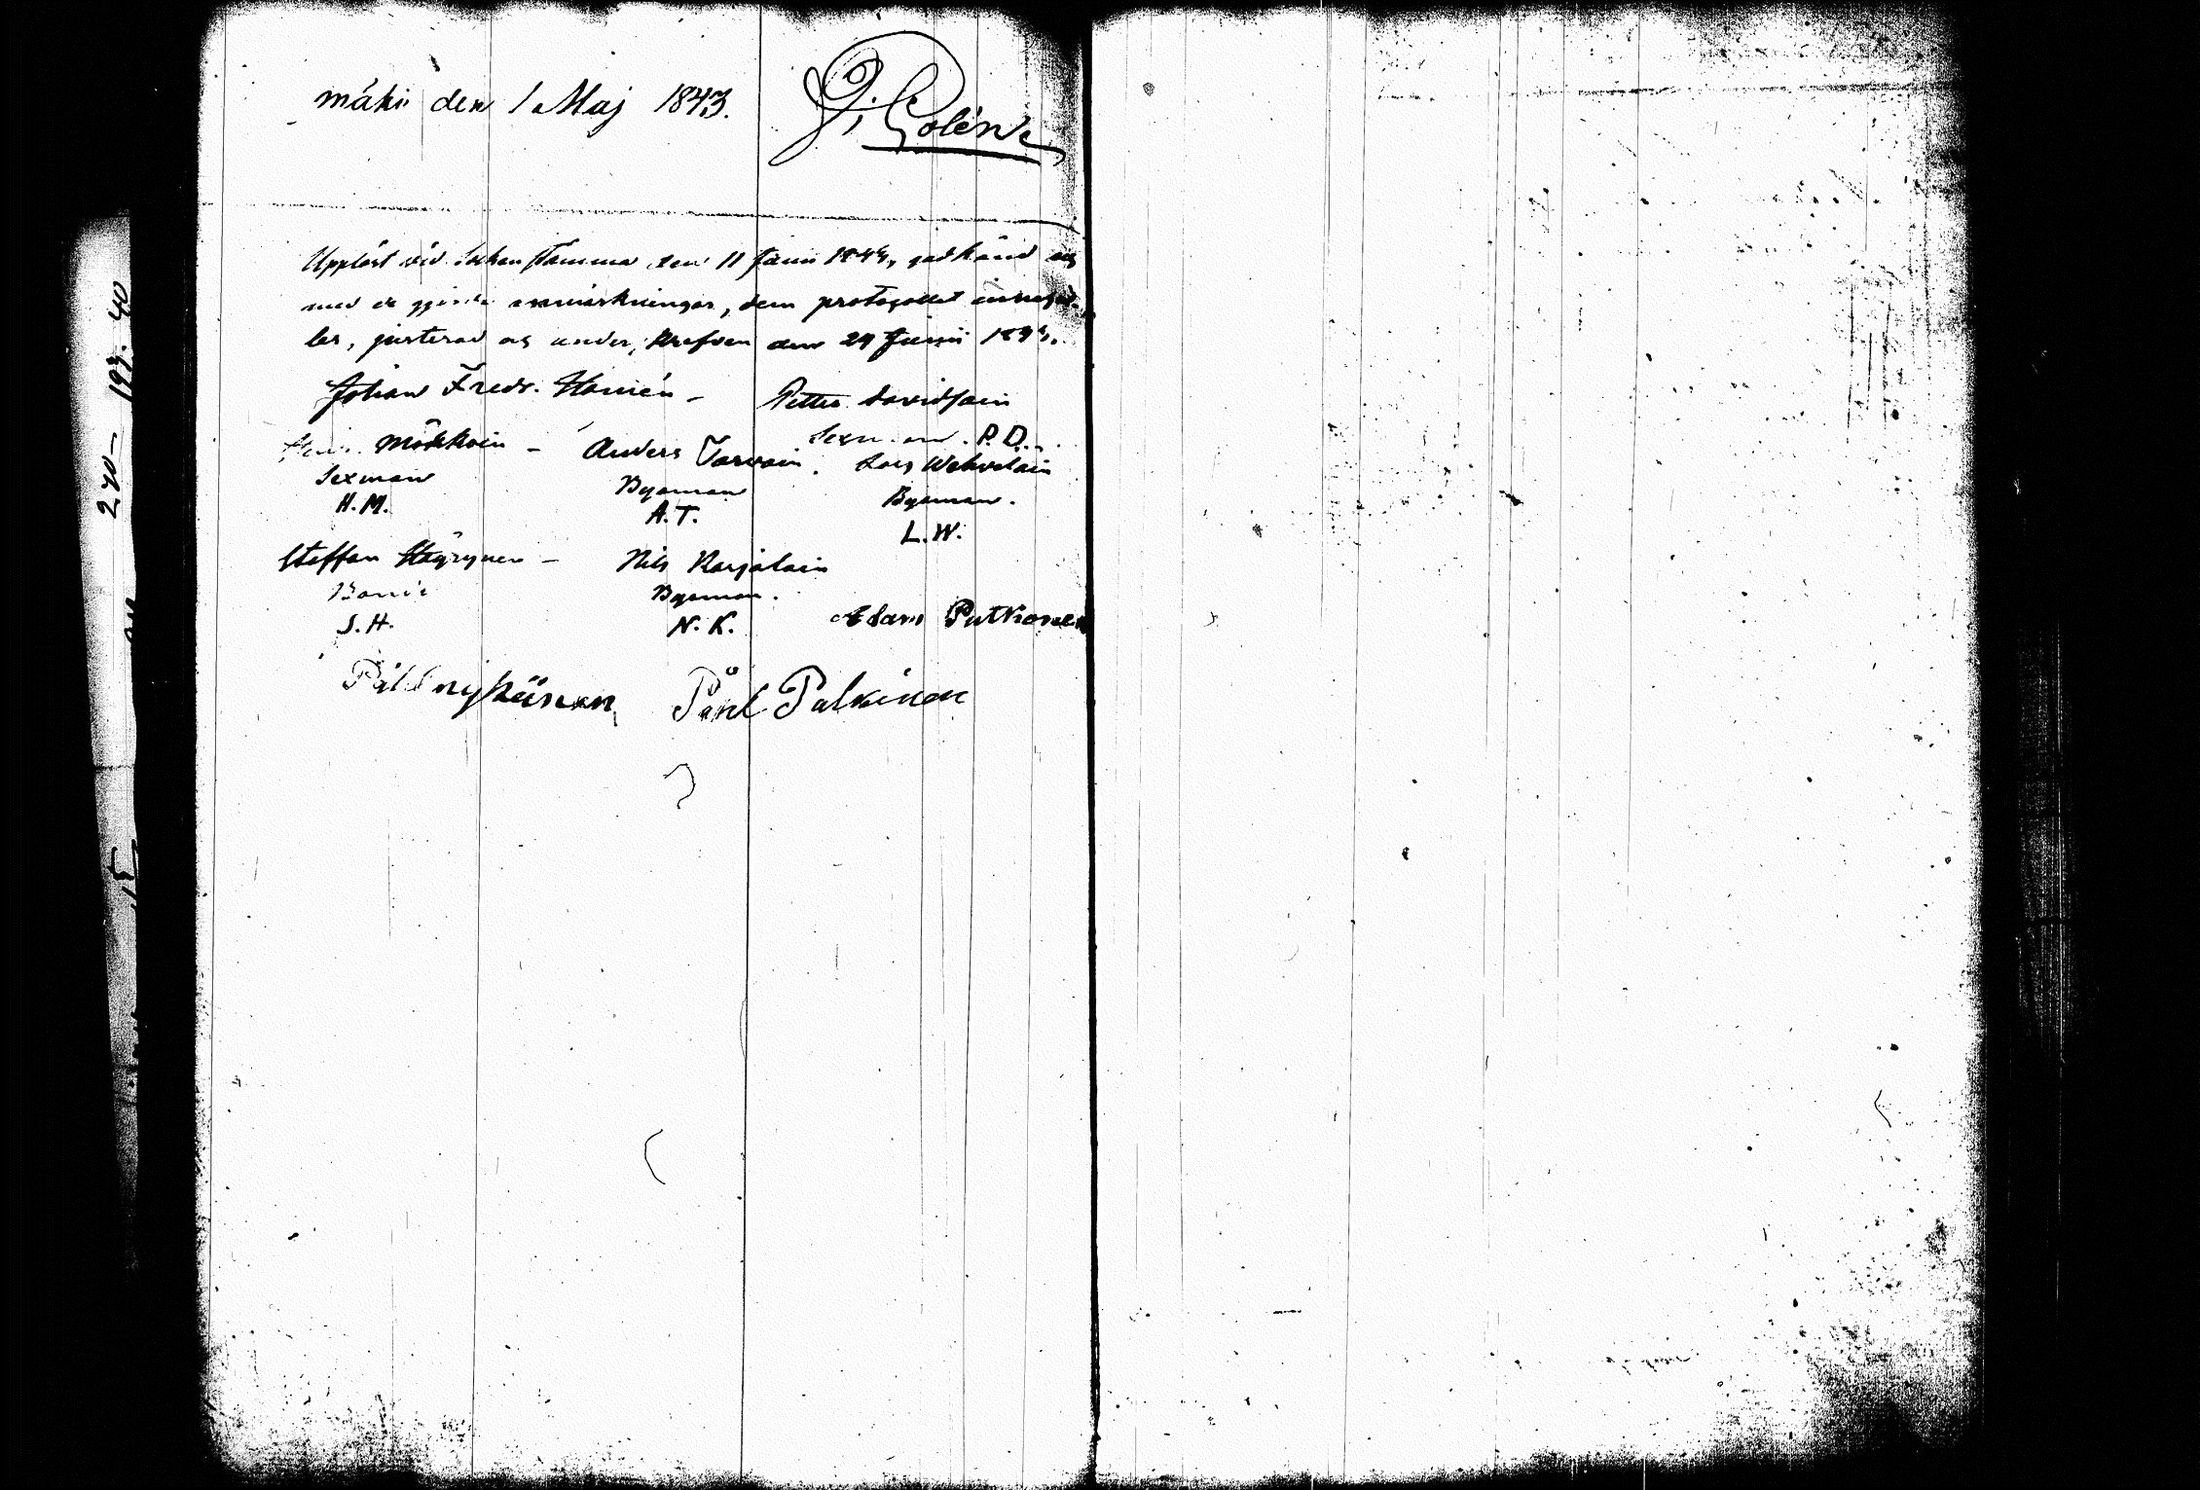 mäki den 1 Maj 1843.
Uppläst vid Sockenstämma den 11 Junii 1844, godkänd och
med de gjorda anmärkningar, dem protocollet innehål-
ler, justerad och underskrefven den 29 Junii 1844.
Johan Fredr. Hamén – Petter Davidsain
Sexman P.D.
Henr. Mökkoin – Anders Tarvain. Lars Wehvilain
Sexman Byaman Byaman.
H.M. A.T. L.W.
Staffan Häyrynen – Nils Karjalain
Bonde Byaman.
S.H. N.K. Adam Putkonen
Pål Pulkinen
220– 199. 40
15